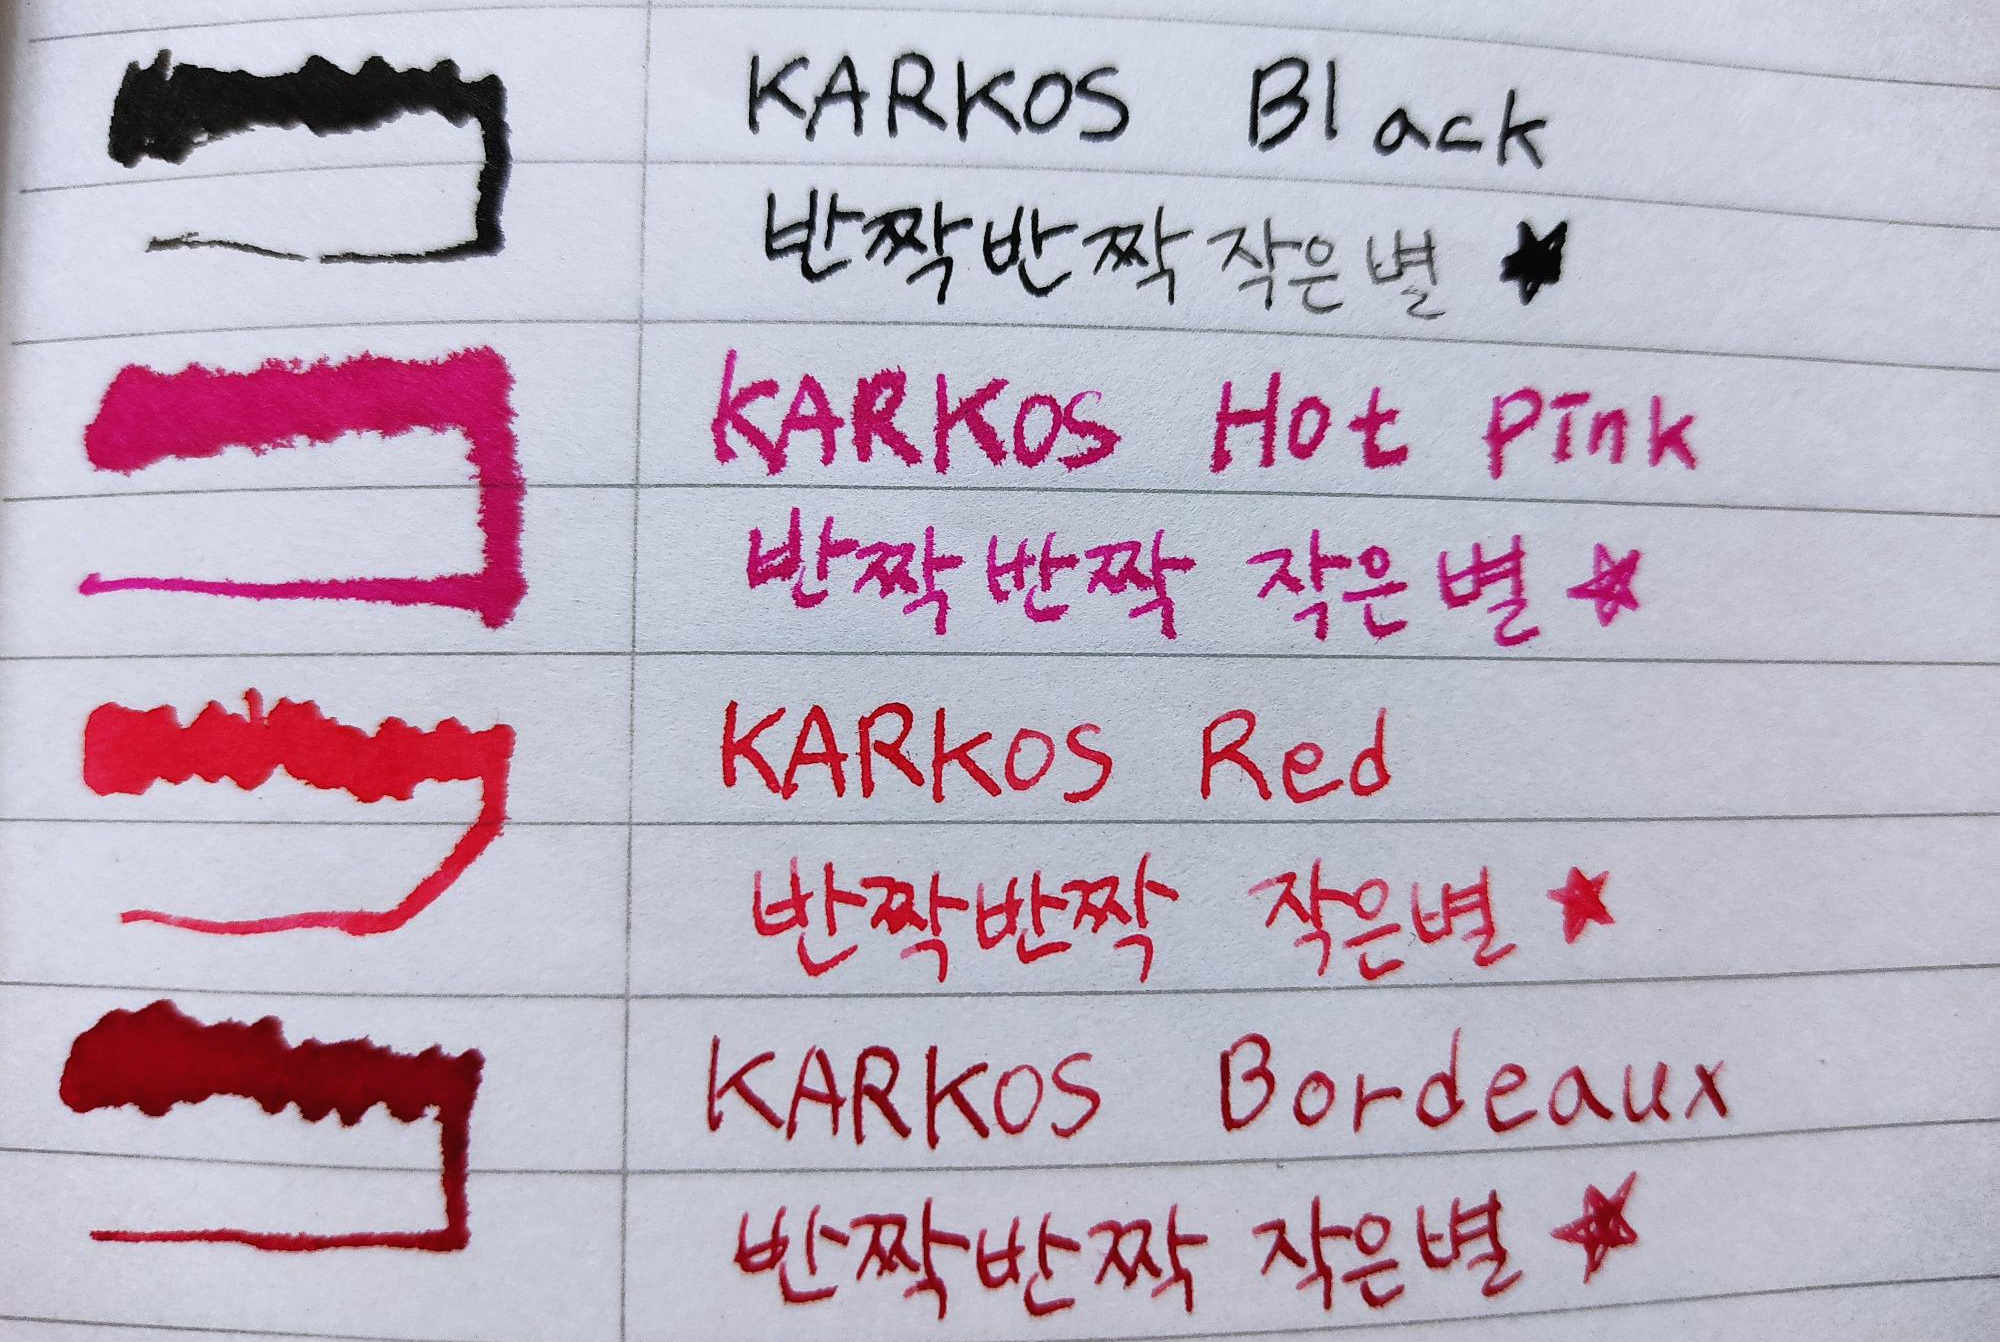 KARKOS Black
반짝반짝 작은별 ★
KARKOS Hot Pink
반짝 반짝 작은별 ☆
KARKOS Red
반짝반짝 작은별 ★
KARKOS Bordeaux
반짝반짝 작은별 ☆